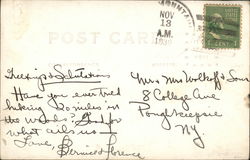 POST CARD
MOUNTAIN
NOV
13
A.M.
Greetings & Salutations
Have you ever tried
hiking 20 miles in
the woods? 
what ails us
Love, Bernice & Florence
Mrs Mrs & Son
8 College Ave
Poughkeepsie
N.Y.